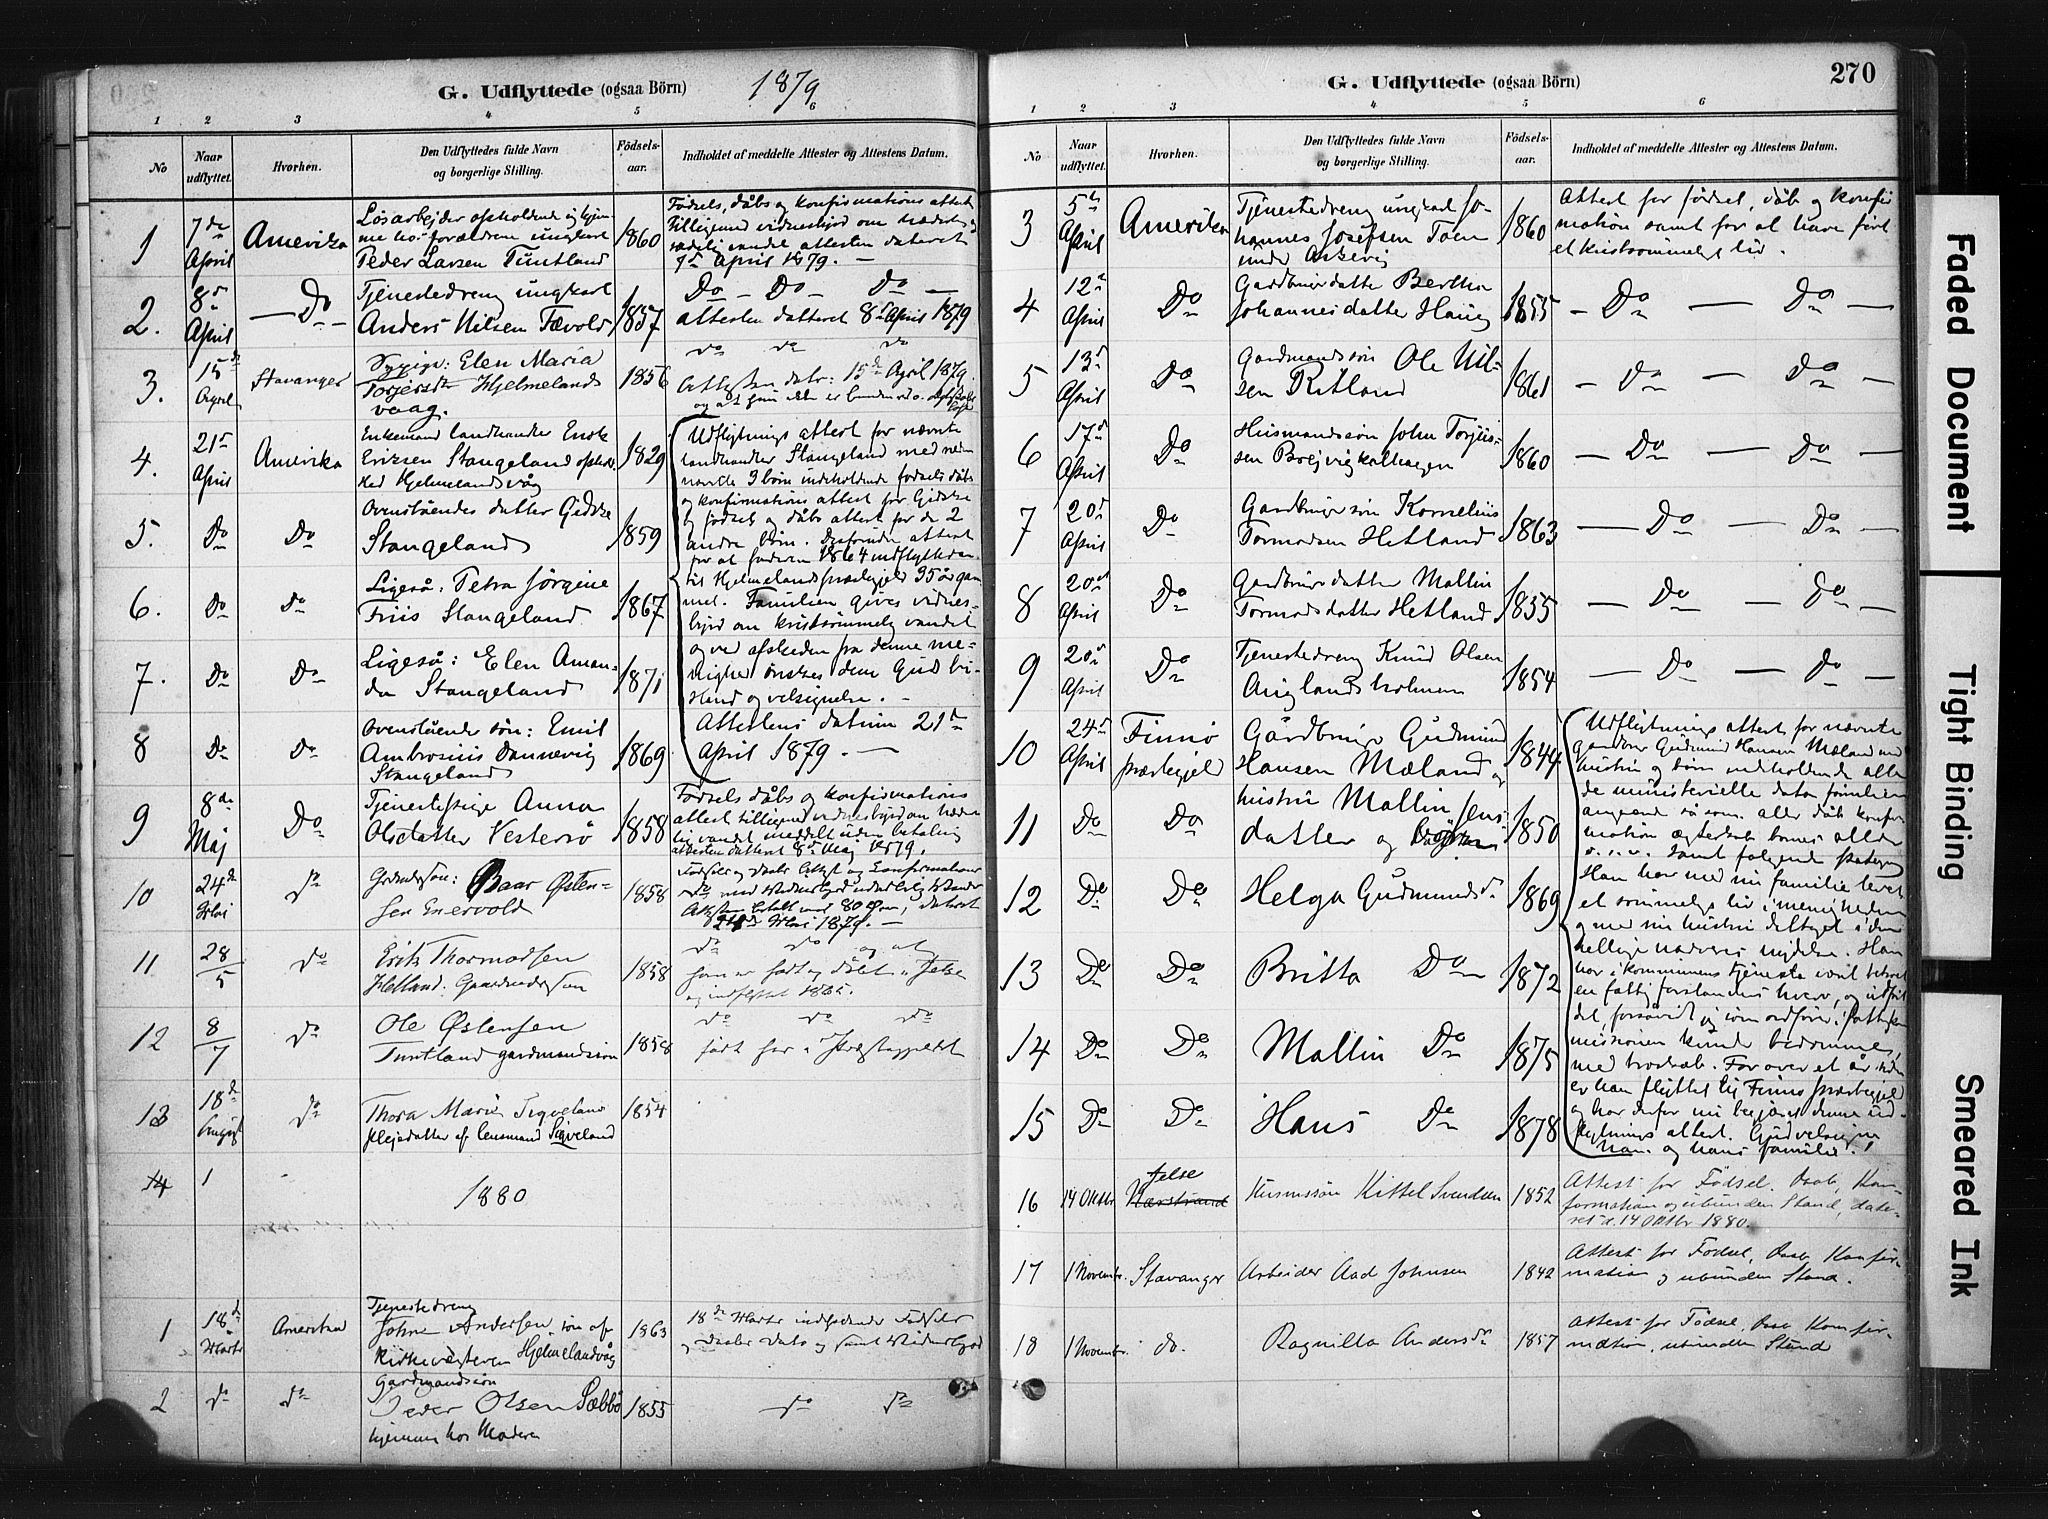 G. Udflyttede (ogsaa Börn) 1879
1 2 3 4 5 6
No
Naar udflyttet.
Hvorhen.
Den Udflyttedes fulde Navn og borgerlige Stilling.
Födsels-aar.
Indholdet af meddelte Attester og Attestens Datum.
1 7de April Amerika
Løsarbejder opholdende sig hjem-
me hos forældrene ungkarl
Peder Larsen Tuntland 1860
Fødsels, dåbs og konfirmations attest
tilligemed vidnesbyrd om hæderlig og
sædelig vandel attesten dateret
7d April 1879. —
2. 8d April — Do —
Tjenestedreng ungkarl
Anders Nilsen Fævold 1857
Do — Do — Do —
attesten datteret 8d April 1879
3. 15de April Stavanger
Sypige: Elen Maria
Torjersdr Hjelmelands
vaag. 1856
do do do
Attesten datr: 15de April 1879.
og at hun ikke er bunden
4. 21d April Amerika
Enkemand landhandler Enok
Eriksen Stangeland
ved Hjelmelandsvåg 1829
Udflytnings attest for nævnte
landhandler Stangeland med neden
nævnte 3 børn indeholdende fødsels dåbs
og konfirmations attest for Gidske
og fødsels og dåbs attest for de 2
andre børn. Desforuden attest
for at faderen 1864 indflyttede
til Hjelmelands præstegjeld 35 år gam
mel. Familien gives vidnes-
byrd om kristsømmelig vandel
og ved afskeden fra denne me-
nighed ønskes dem Guds bi-
stand og velsignelse. —
Attestens datum 21de
April 1879. —
5. Do Do
Ovenståendes datter Gidske
Stangeland 1859
6. Do Do
Ligeså: Petra Jørgine
Friis Stangeland 1867
7. Do Do
Ligeså: Elen Aman-
da Stangeland 1871
8 Do Do
Ovenståender søn: Emil
Ambrosius Dannevig
Stangeland 1869
9 8de Maj Do
Tjenestepige Anna
Olsdatter Vestersø 1858
Fødsels dåbs og konfirmations
attest tilligemed vidnesbyrd om hæder
lig vandel meddelt uden betaling
attesten datteret 8de Maj 1879.
10 24de Mai do
Grdmdsøn: Baar Østen-
sen Enervold 1858
Fødsels og daabs Attest og Confirmations
do med Vidnesbyrd
Attesten betalt med 80 Øre, dateret
24de Mai 1879. —
11 28/5 do
Erik Thormodsen
Hetland. Gaardmdssøn 1858
do do og at
han er født og døbt i Jelse
og indflyttet 1865.
12 8/7 do
Ole Østensen
Tuntland gardmandssøn 1858
do do do
født her i Præstegjeldet
13 18de August do
Thora Marie Siqveland
plejedatter af lensmand Siqveland 1854
14 1
1880
1 18de Marts Amerika
Tjenestedreng
John Andersen, søn af
Kirkeværgeren Hjelmelandvåg 1863
18de Marts indeholdende Fødsels
og Daabs Dato og samt Vidnesbyrd
2 do do
Gardmandssøn
Peder Olsen Sæbbø
hjemme hos Moderen 1855
do do
G. Udflyttede (ogsaa Börn) 270
1 2 3 4 5 6
No
Naar udflyttet.
Hvorhen.
Den Udflyttedes fulde Navn og borgerlige Stilling.
Födsels-aar.
Indholdet af meddelte Attester og Attestens Datum.
3 5te April Amerika
Tjenestedreng ungkarl Jo-
hannes Josefsen Toen
under Askevig 1860
Attest for fødsel, dåb og konfir
mation samt for at have ført
et kristsømmeligt liv.
4 12te April Do
Gardbruger datter Bertha
Johannesdatter Haug 1855
— Do — Do —
5 13d April Do
Gardmandssøn Ole Nil-
sen Ritland 1861
— Do — Do —
6 17d April Do
Husmandssøn John Torjus-
sen Brejvigkalhagen 1860
— Do — Do —
7 20d April Do
Gardbruger søn Kornelius
Tormodsen Hetland 1863
— Do — Do —
8 20d April Do
Gardbruger datter Mallin
Tormodsdatter Hetland 1855
— Do — Do —
9 20d April Do
Tjenestedreng Knud Olsen
Auglandsholmen 1854
— Do — Do
10 24d April Finnø præstegjeld
Gårdbruger Gudmund
Hansen Mæland og 1844
Udflytnings attest for nævnte
Gardbrer Gudmund Hansen Mæland med
hustru og børn indholdende alle
de ministerielle data familien
angaaende så som alder dåb konfir
mation ægteskab børnes alder
o.s.v. samt følgende
Han har med sin familie levet
et sømmeligt liv i menigheden
og med sin hustru deltaget i den
hellige nadveres nydelse. Han
har i kommunens tjeneste
en fattig forstanders hverv, og udført
det, forsåvidt jeg som ordfører i Fattigkom
missionen kunde bedømme,
med troskab. For over et år siden
er han flyttet til Finnø præstegjeld
og har derfor nu begjæret denne ud-
flytnings attest. Gud velsigne
ham og hans familie!
11 Do Do
hustru Mallin Jens
datter og børn 1850
12 Do Do
Helga Gudmundsdr 1869
13 Do Do
Britta Do 1872
14 Do Do
Mallin Do 1875
15 Do Do
Hans Do 1878
16 14 Oktbr Jelse
Nærstrand
Husmssøn Kittel Svendsen 1852
Attest for Fødsel, Daab, Kon-
formation og ubunden Stand, date-
ret d. 14 Oktbr 1880.
17 1 Novembr. Stavanger
Arbeider Aad Johnsen 1842
Attest for Fødsel, Daab Konfir-
mation og ubunden Stand.
18 1 Novembr. do.
Ragnilla Andersdr 1857
Attest for Fødsel, Daab Konfir-
mation, ubunden Stand
Faded Document
Tight Binding
Smeared Ink